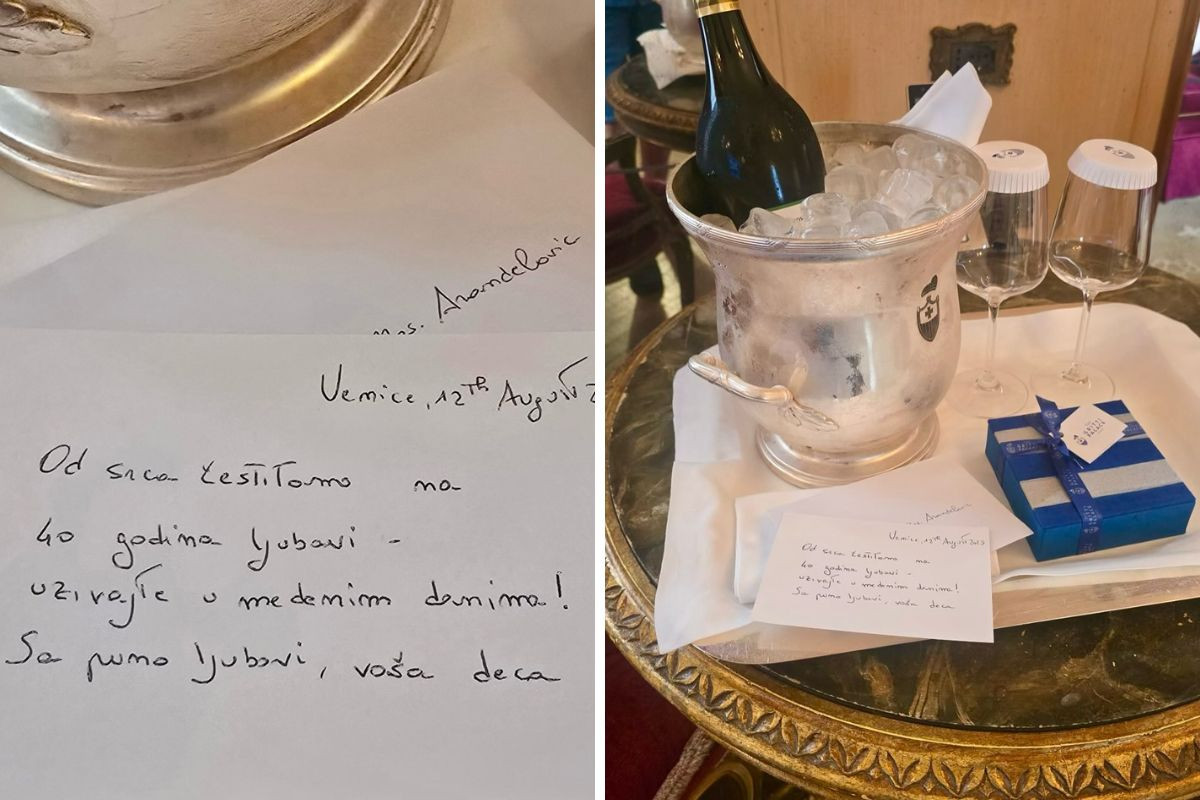 mrs. Arandelovic
Venice, 12th August 2
Od srca čestitamo na
40 godina ljubavi -
uzivajte u medenim danima!
Sa puno ljubavi, vaša deca
mrs. Arandelovic
Venice, 12th August
Od srca čestitamo na
40 godina ljubavi -
uzivajte u medenim danima!
Sa puno ljubavi, vaša deca
THE
GRITTI
PALACE